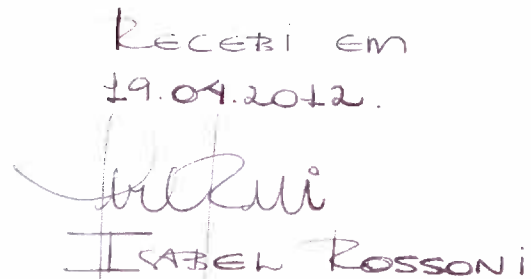 RECEBI EM
19.04.2012.
ISABEL ROSSONI